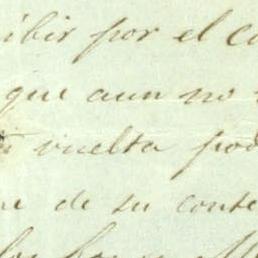 ibir por el c
que aun no
vuelta pod
e de su conte